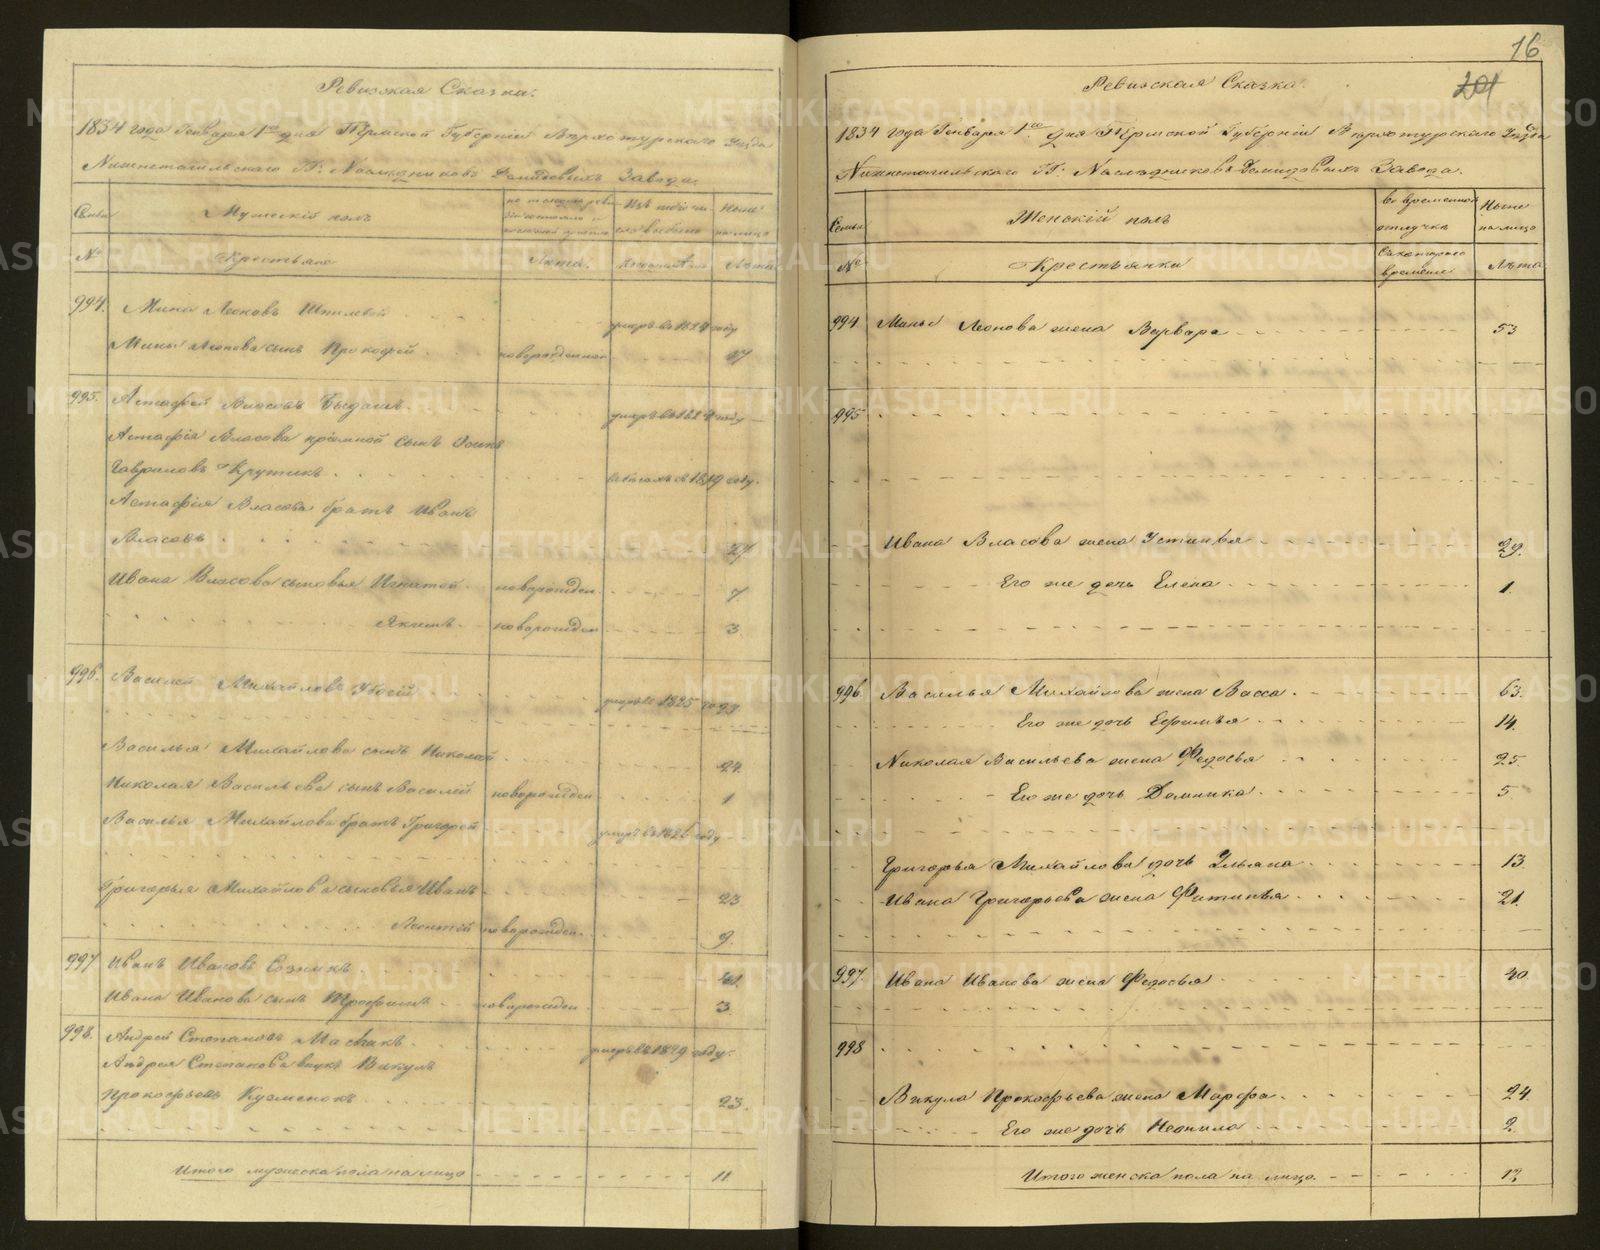 Ревизская Сказка.
1834 года Генваря 1го дня Пермской Губернии Верхотурского Уезда
Нижнетагильского Гг: Наследниковъ Демидовыхъ Завода.
Семьи
Мужескій полъ
Изъ того числа выбыло
Ныне на лицо
№
Крестьяне
Лета.
Когда именно
Лета
994.
Мина Леоновъ
умеръ въ 1827 году
Мины Леонова сынъ Прокофей
новорожденной
17
995.
Астафей Власовъ
умеръ въ 1824 году
Астафія Власова приемной сынъ
Гавриловъ Крутикъ
въ 1819 году.
Астафія Власова братъ Иванъ
Власовъ
27
Ивана Власова сыновья Игнатей
новорожден.
7.
Якимъ
новорожден
3.
996.
Василей Михайловъ
умеръ въ 1825 году
Василья Михайлова сынъ Николай
24.
Николая Васильева сынъ Василей
новорожден
1
Василья Михайлова братъ Григорей
умеръ въ 1826 году
Григорья Михайлова сыновья Иванъ
23
Леонтій
новорожден.
9.
997
Иванъ Ивановъ
41.
Ивана Иванова сынъ Трофимъ
новорожден
3.
998.
Андрей Степановъ
умеръ въ 1829 году.
Андрея Степанова внукъ Викулъ
Прокофьевъ
23.
Итого мужеска пола на лицо
11
16
201
Ревизская Сказка.
1834 года Генваря 1го дня Пермской Губерніи Верхотурского Уезда
Нижнетагильского Гг: Наследниковъ Демидовыхъ Завода.
Семьи
Женскій полъ
во временной отлучке
Ныне на лицо
№
Крестьянки
Съ котораго времени
Лета
994
Мины Леонова жена Варвара
53
995
Ивана Власова жена Устинья
29.
Его же дочь Елена
1.
996.
Василья Михайлова жена Васса
63.
Его же дочь Ефимья
14.
Николая Васильева жена Федосья
25.
Его же дочь Домника
5
Григорья Михайлова дочь Ульяна
13.
Ивана Григорьева жена Фетинья
21.
997.
Ивана Иванова жена Федосья
40.
998
Викула Прокофьева жена Марфа
24
Его же дочь Неонила
2.
Итого женска пола на лицо
12
METRIKI.GASO-URAL.RU